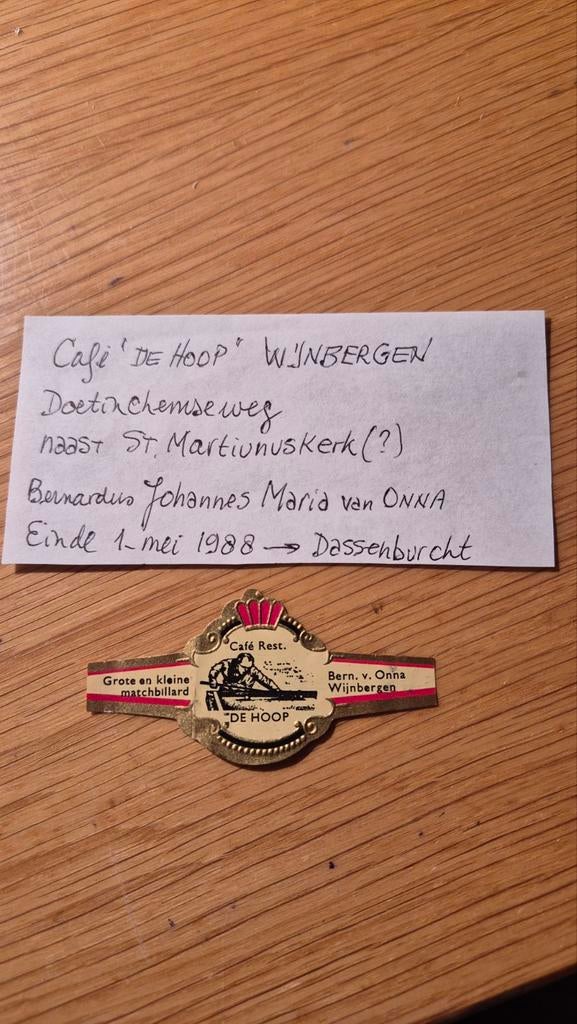 Café "DE HOOP" WIJNBERGEN
Doetinchemseweg
naast St. Martiunuskerk (?)
Bernardus Johannes Maria van ONNA
Einde 1-mei 1988 → Dassenburcht
Café Rest.
Grote en kleine
matchbillard
Bern. v. Onna
Wijnbergen
"DE HOOP"